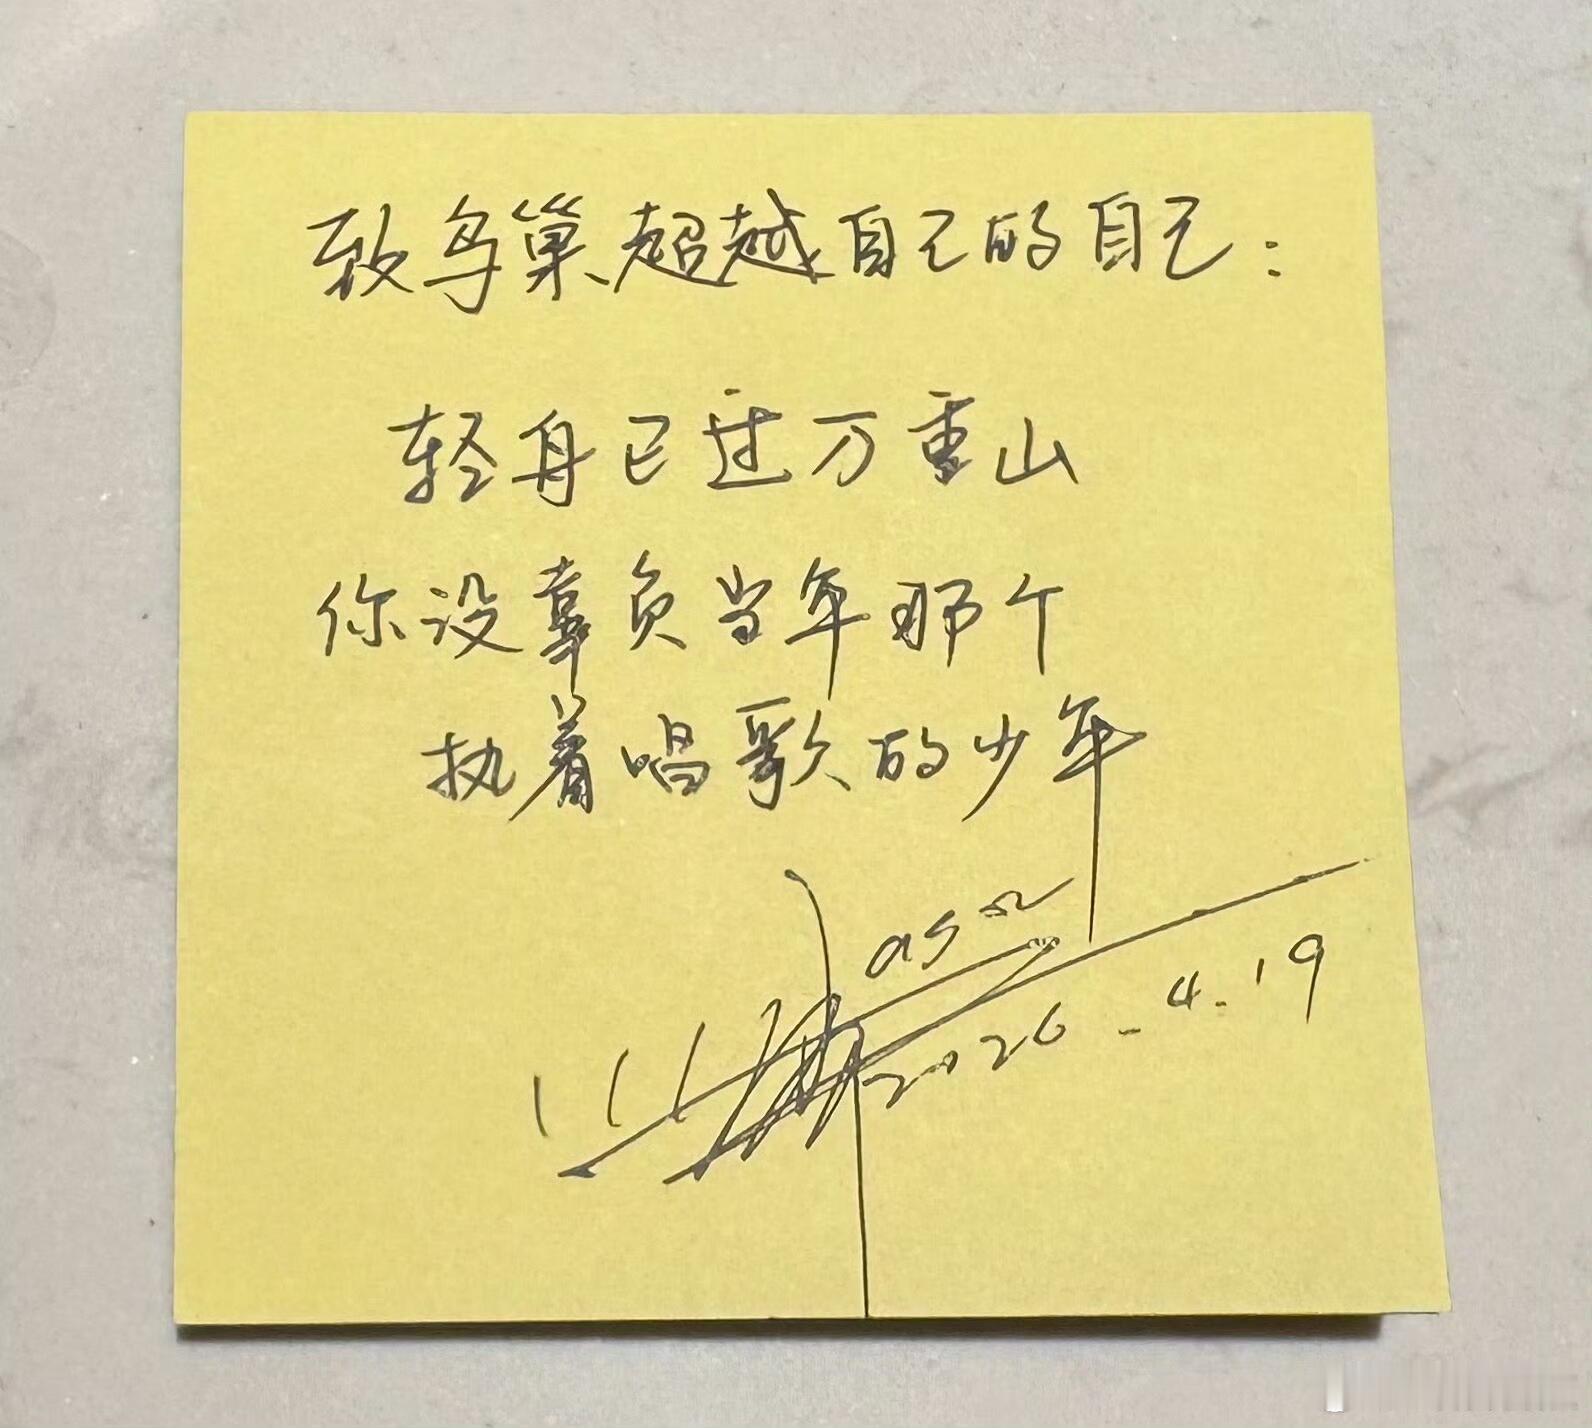 致鸟巢超越自己的自己:
轻舟已过万重山
你没辜负当年那个
执着唱歌的少年
2026.4.19